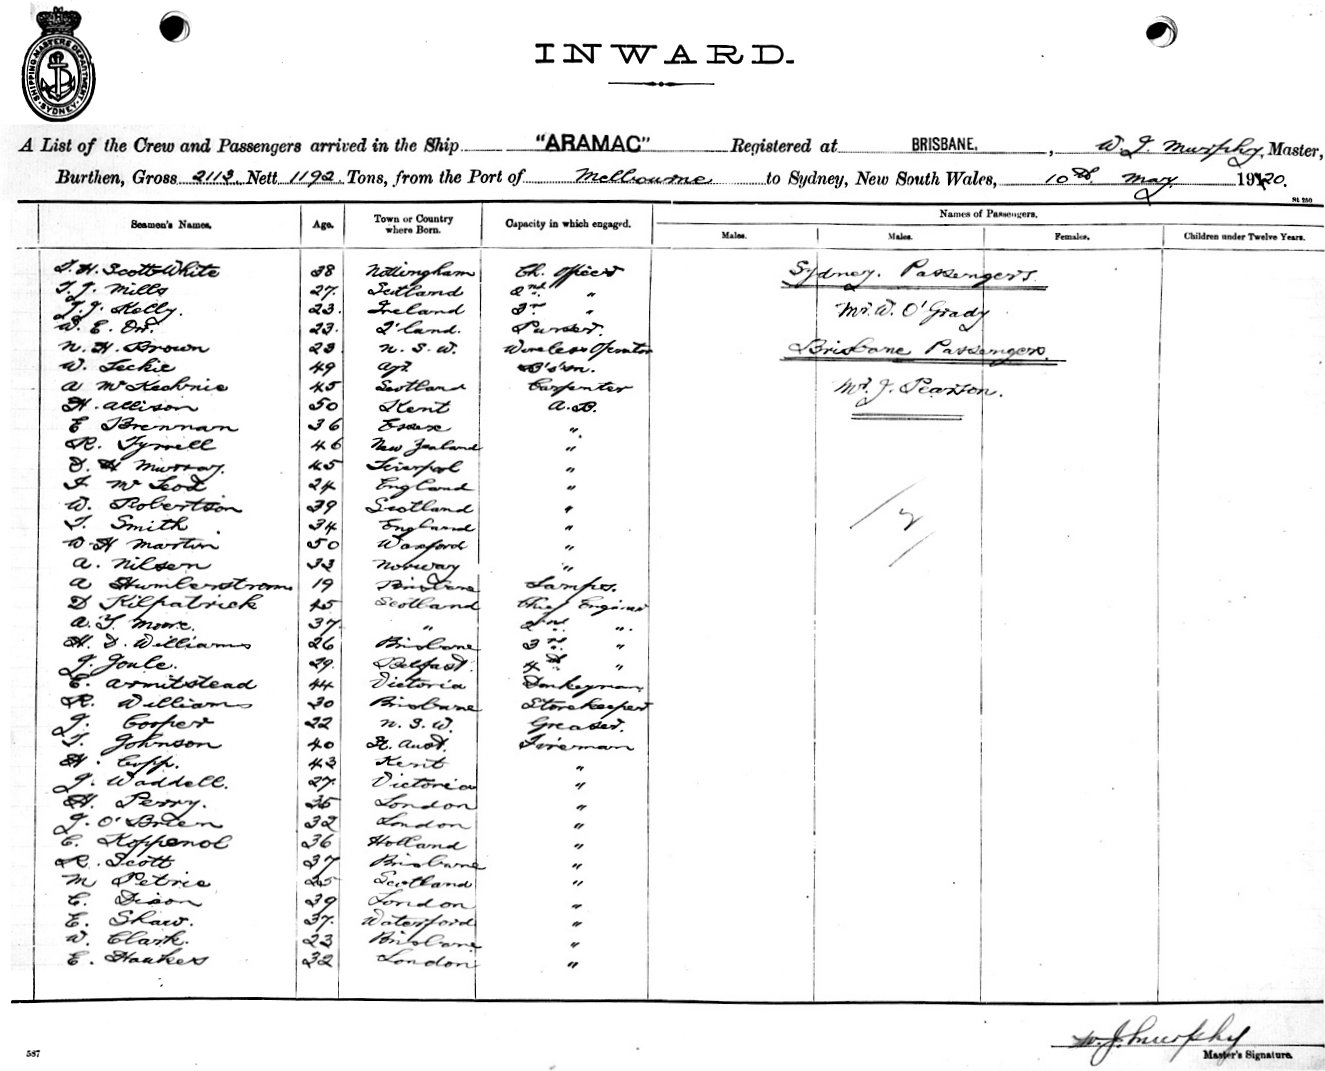 SHIPPING MASTERS DEPARTMENT SYDNEY
INWARD.
A List of the Crew and Passengers arrived in the Ship "ARAMAC" Registered at BRISBANE, W. J. Murphy, Master,
Burthen, Gross 2113 Nett 1192 Tons, from the Port of Melbourne to Sydney, New South Wales, 10th May 1920.
St 250
Seamen's Names. Age. Town or Country where Born. Capacity in which engaged. Names of Passengers.
Males. Males. Females. Children under Twelve Years.
J. H. Scott-White 38 Nottingham Ch. Officer Sydney. Passengers.
T. J. Mills 27. Scotland 2nd "
J. J. Kelly. 23. Ireland 3rd " Mr. W. O'Grady
W. E. Orr. 23. Q'land. Purser.
N. H. Brown 23 N. S. W. Wireless Operator Brisbane Passengers.
W. Leckie 49 Ayr B's'n.
A McKechnie 45 Scotland Carpenter Mr. J. Pearson.
H. Allison 50 Kent A.B.
E Brennan 36 Essex "
R. Tyrrell 46 New Zealand "
D. H Murray. 45 Liverpool "
McLeod 24 England "
W. Robertson 39 Scotland "
T. Smith 34 England "
W. H Martin 50 Wexford "
A. Nilsen 33 Norway "
A Humberstrom 19 Brisbane Lamps.
D Kilpatrick 45 Scotland Chief Engineer
A. T. Moore. 37. " 2nd "
H. D. Williams 26 Brisbane 3rd "
J. Joule. 29. Belfast. 4th "
E. Armitstead 44 Victoria Donkeyman
R. Williams 30 Brisbane Storekeeper
J. Cooper 22 N. S. W. Greaser.
T. Johnson 40 St. Aust. Fireman
H. Copp. 43 Kent "
J. Waddell. 27. Victoria "
H. Perry. 35 London "
J. O'Brien 32 London "
C. Koppenol 36 Holland "
R. Scott 37 Brisbane "
M Petrie 25 Scotland "
C. Dixon 39 London "
E. Shaw. 37. Waterford "
W. Clark. 23 Brisbane "
E. Hawkes 32 London "
W. J. Murphy
Master's Signature.
587